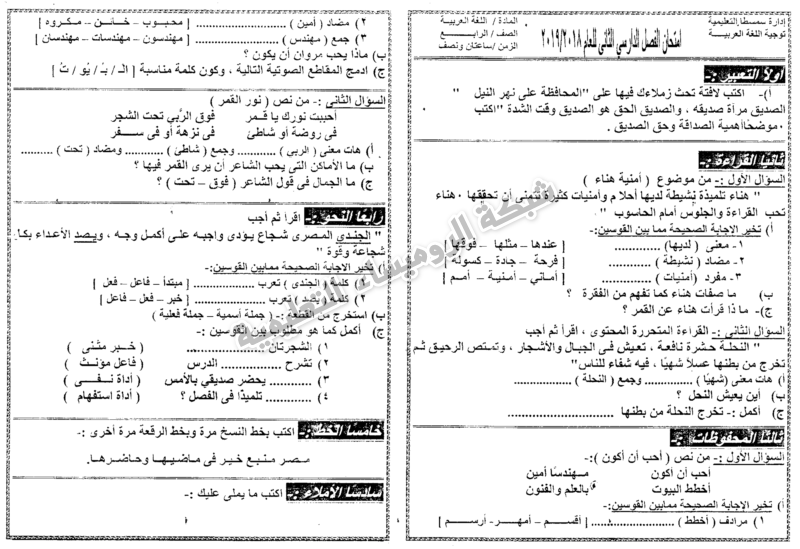 إدارة سمسطا التعليمية
توجية اللغة العربية
امتحان الفصل الدارسي الثاني للعام ٢٠١٩/٢٠١٨
المادة / اللغة العربية
الصف / الرابع
الزمن / ساعتان ونصف
أولاً التعبير :-
أ)- اكتب لافتة تحث زملاءك فيها على "المحافظة على نهر النيل "
الصديق مرأة صديقه ، والصديق الحق هو الصديق وقت الشدة "اكتب
موضحًا أهمية الصداقة وحق الصديق .
ثانيا القراءة :-
السؤال الأول :- من موضوع ( أمنية هناء )
" هناء تلميذة نشيطة لديها أحلام وأمنيات كثيرة تتمنى أن تحققها ٠هناء
تحب القراءة والجلوس أمام الحاسوب "
أ) تخير الإجابة الصحيحة مما بين القوسين:-
١- معنى ( لديها) ............ [ عندها – مثلها – فوقها ]
٢- مضاد ( نشيطة ) ............ [ فرحة – جادة – كسولة ]
٣- مفرد ( أمنيات ) ............ [ أماني – أمنية – أمم ]
ب) ما صفات هناء كما تفهم من الفقرة ؟
ج) - ما ذا قرأت هناء عن القمر ؟
السؤال الثاني :- القراءة المتحررة المحتوى ، اقرأ ثم أجب
" النحلة حشرة نافعة ، تعيش فى الجبال والأشجار ، وتمتص الرحيق ثم
تخرج من بطنها عسلًا شهيًا ، فيه شفاء للناس"
أ) هات معنى (شهيًا ) ............ وجمع ( النحلة ) ............
ب) أين يعيش النحل ؟
ج) أكمل :- تخرج النحلة من بطنها ............
ثالثا المحفوظات :-
السؤال الأول :- من نص ( أحب أن أكون ) :-
أحب أن أكون مهندسًا أمين
أخطط البيوت بالعلم والفنون
أ) تخير الإجابة الصحيحة ممابين القوسين:-
١ ) مرادف ( أخطط ) ............ [ أقسم – أمهر- أرسم ]
٢) مضاد ( أمين ) ............ [ محبوب – خائن – مكروه ]
٣) جمع ( مهندس ) ............ [ مهندسون – مهندسات – مهندسان ]
ب) ماذا يحب مروان أن يكون ؟
ج) ادمج المقاطع الصوتية التالية ، وكون كلمة مناسبة [ الـ / بـُ / يُو / تُ ]
السؤال الثاني :- من نص ( نور القمر )
أحببت نورك يا قمر فوق الرُّبي تحت الشجر
في روضة أو شاطئ في نزهة أو فى سفر
أ) هات معنى ( الربي ) ............ وجمع ( شاطئ ) ............ ومضاد ( تحت ) ............
ب) ما الأماكن التى يحب الشاعر أن يرى القمر فيها ؟
ج) ما الجمال فى قول الشاعر ( فوق – تحت ) ؟
رابعا النحو :- اقرا ثم أجب
" الجندى المصرى شجاع يؤدى واجبه على أكمل وجه ، ويصد الأعداء بكل
شجاعة وقوة "
تخير الاجابة الصحيحة ممابين القوسين:-
١) كلمة ( الجندى ) تعرب ............ [ مبتدأ – فاعل – فعل ]
٢) كلمة ( يصد ) تعرب ............ [ خبر – فعل – فاعل ]
ب) استخرج من القطعة :- ( جملة أسمية – جملة فعلية )
ج) أكمل كما هو مطلوب بين القوسين :-
١) الشجرتان ............ ( خبر مثنى )
٢) تشرح ............ الدرس ( فاعل مؤنث )
٣) ............ يحضر صديقي بالأمس ( أداة نفى )
٤) ............ تلميذًا فى الفصل ؟ ( أداة استفهام )
خامسا الخط :- اكتب بخط النسخ مرة وبخط الرقعة مرة أخرى :-
مصر منبع خير فى ماضيها وحاضرها.
سادسًا الأملاء :- اكتب ما يملى عليك :-
شبكة الروميساء التعليمية